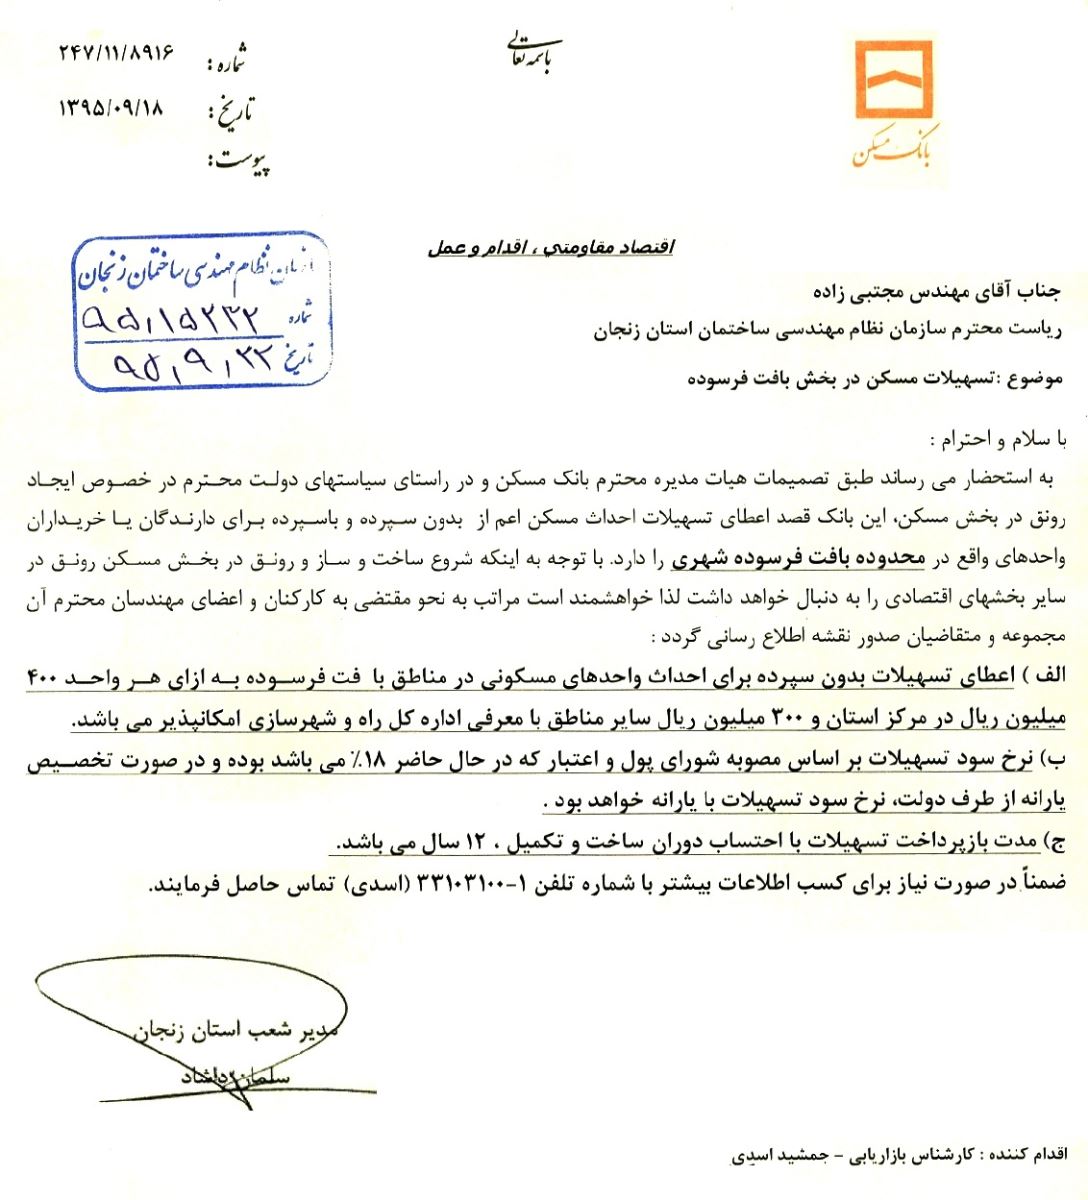 باسمه تعالی
بانک مسکن
شماره : ۲۴۷/۱۱/۸۹۱۶
تاریخ : ۱۳۹۵/۰۹/۱۸
پیوست:
اقتصاد مقاومتی ، اقدام و عمل
سازمان نظام مهندسی ساختمان زنجان
شماره ۹۵،۱۵۲۳۲
تاریخ ۹۵،۹،۲۲
جناب آقای مهندس مجتبی زاده
ریاست محترم سازمان نظام مهندسی ساختمان استان زنجان
موضوع :تسهیلات مسکن در بخش بافت فرسوده
با سلام و احترام :
به استحضار می رساند طبق تصمیمات هیات مدیره محترم بانک مسکن و در راستای سیاستهای دولت محترم در خصوص ایجاد
رونق در بخش مسکن، این بانک قصد اعطای تسهیلات احداث مسکن اعم از بدون سپرده و باسپرده برای دارندگان یا خریداران
واحدهای واقع در محدوده بافت فرسوده شهری را دارد. با توجه به اینکه شروع ساخت و ساز و رونق در بخش مسکن رونق در
سایر بخشهای اقتصادی را به دنبال خواهد داشت لذا خواهشمند است مراتب به نحو مقتضی به کارکنان و اعضای مهندسان محترم آن
مجموعه و متقاضیان صدور نقشه اطلاع رسانی گردد :
الف ) اعطای تسهیلات بدون سپرده برای احداث واحدهای مسکونی در مناطق با فت فرسوده به ازای هر واحد ۴۰۰
میلیون ریال در مرکز استان و ۳۰۰ میلیون ریال سایر مناطق با معرفی اداره کل راه و شهرسازی امکانپذیر می باشد.
ب) نرخ سود تسهیلات بر اساس مصوبه شورای پول و اعتبار که در حال حاضر ۱۸٪ می باشد بوده و در صورت تخصیص
یارانه از طرف دولت، نرخ سود تسهیلات با یارانه خواهد بود .
ج) مدت بازپرداخت تسهیلات با احتساب دوران ساخت و تکمیل ، ۱۲ سال می باشد.
ضمناً در صورت نیاز برای کسب اطلاعات بیشتر با شماره تلفن ۱-۳۳۱۰۳۱۰۰ (اسدی) تماس حاصل فرمایند.
مدیر شعب استان زنجان
سلمان دلشاد
اقدام کننده : کارشناس بازاریابی - جمشید اسدی